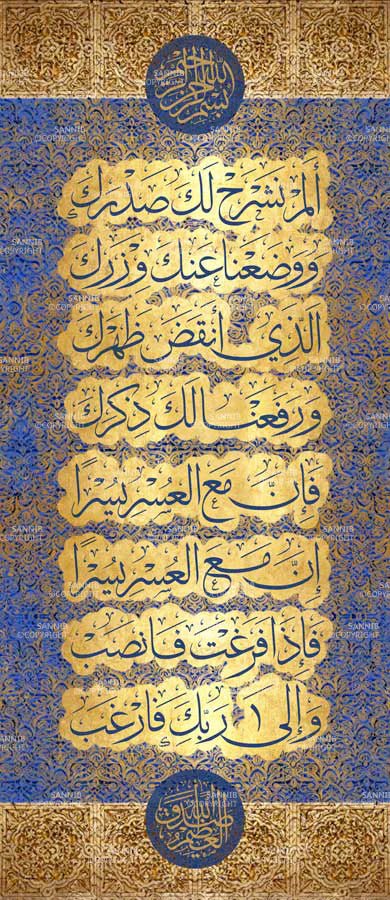 بسم الله الرحمن الرحيم
ألم نشرح لك صدرك
ووضعنا عنك وزرك
الذي أنقض ظهرك
ورفعنا لك ذكرك
فإن مع العسر يسرا
إن مع العسر يسرا
فإذا فرغت فانصب
وإلى ربك فارغب
صدق الله العظيم
SANNIB
©COPYRIGHT